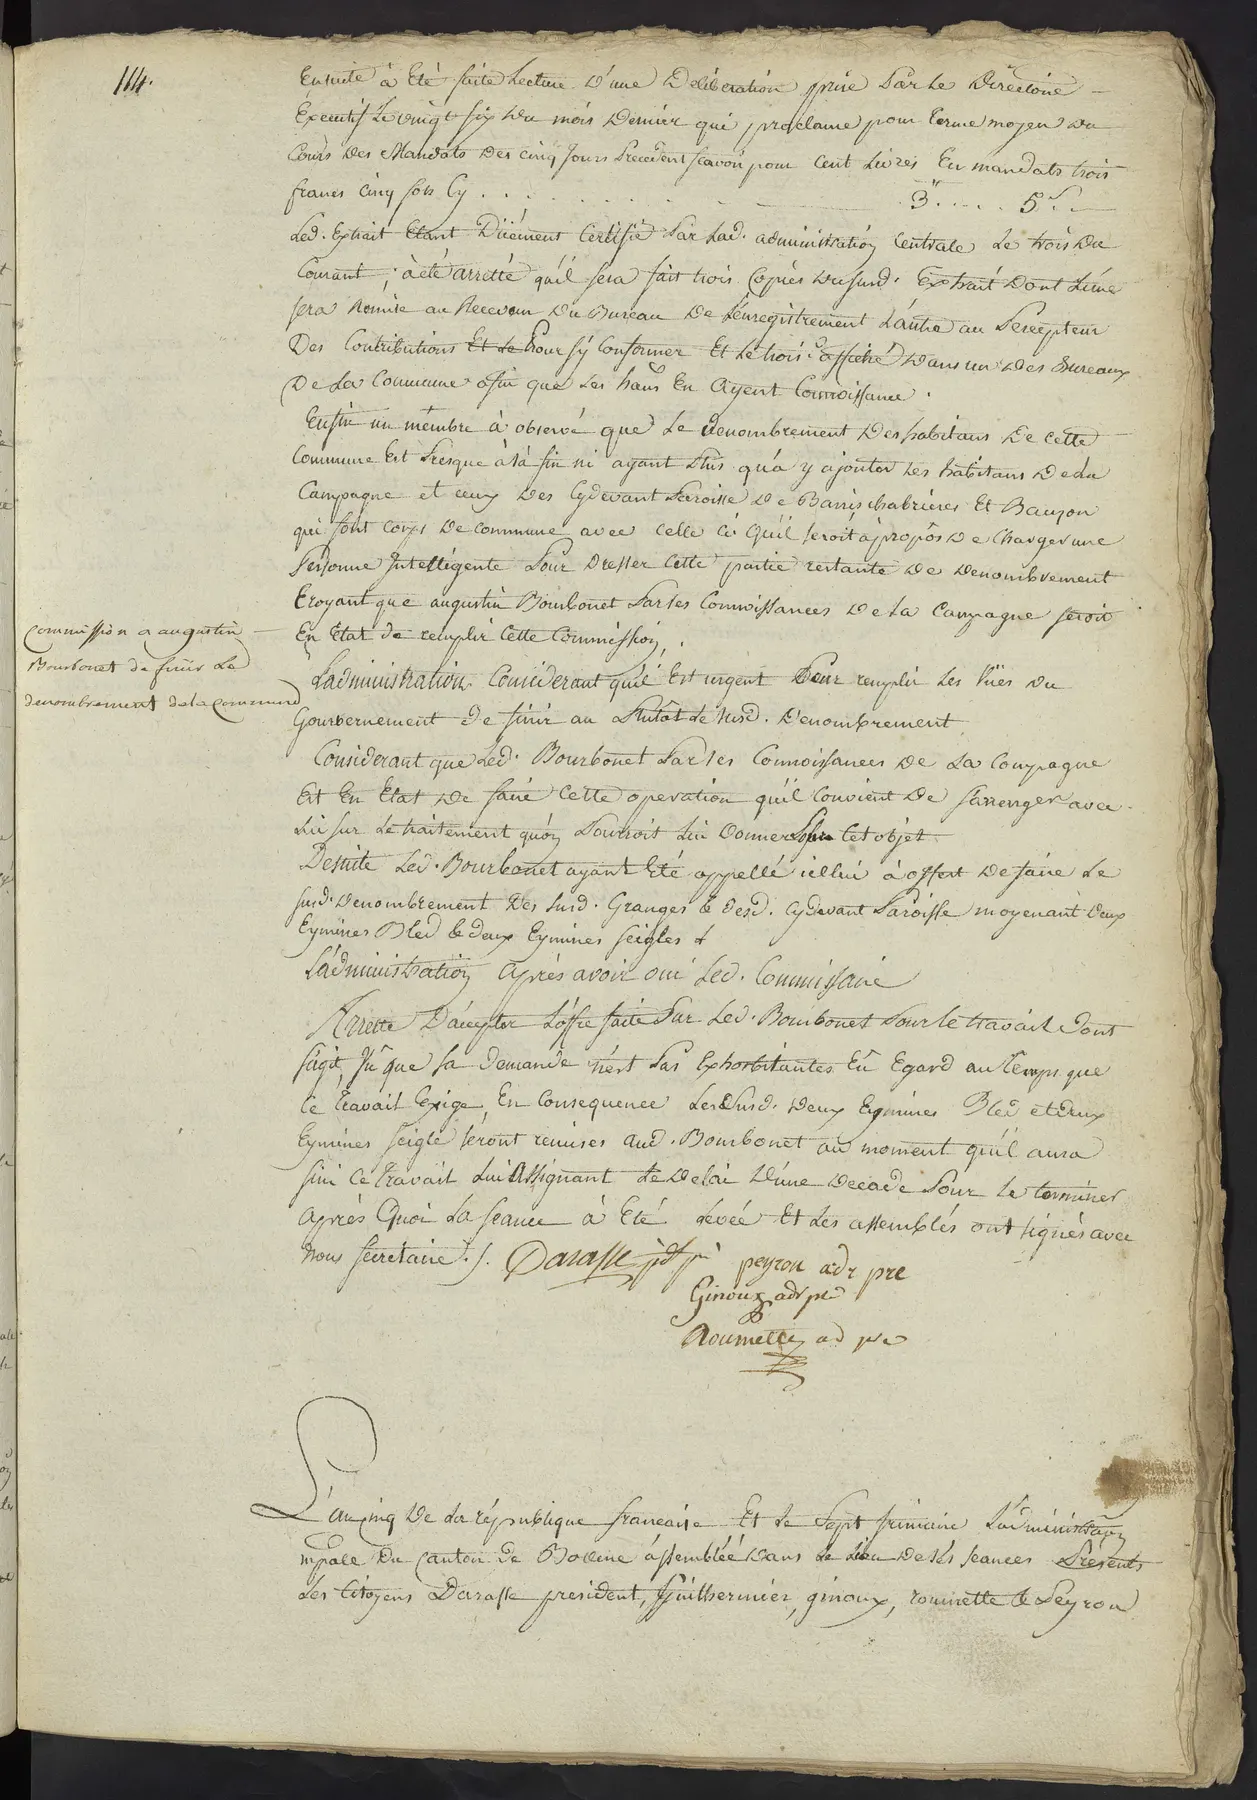 114.
Ensuite à Eté faite Lecture d'une Deliberation prise Par Le Directoire
Executif Le vingt six du mois Dernier qui proclame pour terme moyen du
Cours des Mandats Des cinq Jours Precedent scavoir pour Cent Livres En mandats trois
francs cinq sols Cy . . . . . . . . 3 . . . . 5 s.
Led. Extrait Etant Duement Certifié Par Lad. administration Centrale Le trois du
Courant, à été arretté qu'il sera fait trois Copies dususd. Extrait Dont L'une
sera Remise au Receveur Du Bureau De L'enregistrement L'autre au Percepteur
Des Contributions Pour sy Conformer Et Le trois.e affiché dans un des Bureaux
De La Commune afin que Les hans En Ayent Connoissance.
Enfin un membre à observé que Le denombrement Des habitans De cette
Commune Est Presque à la fin ni ayant Plus qu'a y ajouter Les habitans De La
Campagne et ceux des Cydevant Paroisse De Barri chabrieres Et Bauzon
qui font corps De commune avec celle ci qu'il seroit à propos De Charger une
Personne Intelligente Pour Dresser Cette partie restante de denombrement
Croyant que augustin Bourbonet Par ses Connoissances De La Campagne seroit
En Etat de remplir Cette Commission.
commission a augustin
Bourbonet de finir Le
denombrement de la commune
L'administration Considerant qu'il Est urgent Pour remplir Les Vües du
Gouvernement de finir au Plutôt Le susd. Denombrement
Considerant que Led. Bourbonet Par ses Connoissances De La Compagne
Est En Etat De faire Cette operation qu'il Convient De s'arrenger avec
Lui sur Le traitement qu'on Pourroit Lui Donner Pour Cet objet
De suite Led. Bourbonet ayant Eté appellé icellui à offert De faire Le
susd. Denombrement Des susd. Granges & desd. Cydevant Paroisse moyenant Deux
Eymines Bled & deux Eymines seigles
L'administration Après avoir oui Led. Commissaire
Arrette D'accepter L'offre faite Par Led. Bourbonet Pour le travail dont
s'agit, Vû que sa demande n'est Pas Exhorbitantes Eû Egard au temps que
Ce Travail Exige, En Consequence Lesd susd. Deux Eymines Bled et Deux
Eymines seigle seront remises aud. Bourbonet au moment qu'il aura
fini Ce travail Lui Assignant Le Delai D'une Decade Pour Le terminer
Après Quoi La seance à Eté Levée Et Les assemblés ont signés avec
nous secretaire.
Darasse pdt peyron adr pre
Ginoux adr
Roumette ad
L'an cinq De La république francaise Et Le Sept frimaire L'administration
mpale Du Canton de Bollene assemblée dans Le Lieu De ses seances Présents
Les Citoyens Darasse president, Guilhermier, ginoux, roumette & Peyron